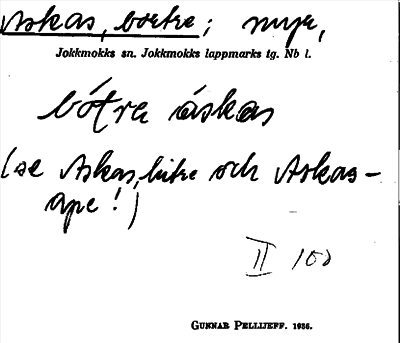 Askas, bortre; myr,
Jokkmokks sn. Jokkmokks lappmarks tg. Nb l.
bót̯ra áskas
(se Askas, hitre och Askas-
ape!)
II 100
GUNNAR PELLIJEFF. 1936.